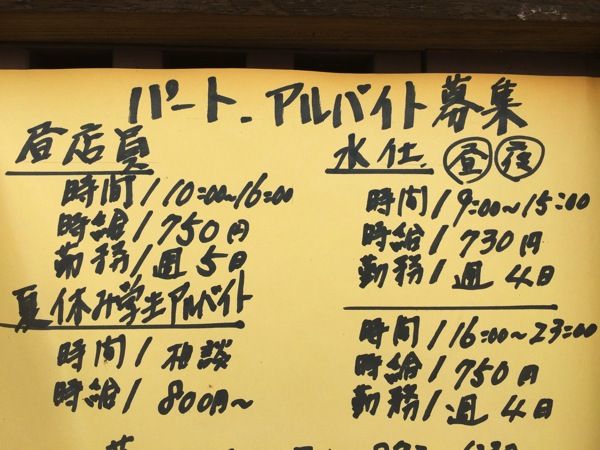 パート.アルバイト募集
昼店員
時間/10:00~16:00
時給/750円
勤務/週5日
夏休み学生アルバイト
時間/相談
時給/800円~
水仕. 昼 夜
時間/9:00~15:00
時給/730円
勤務/週4日
時間/16:00~23:00
時給/750円
勤務/週4日